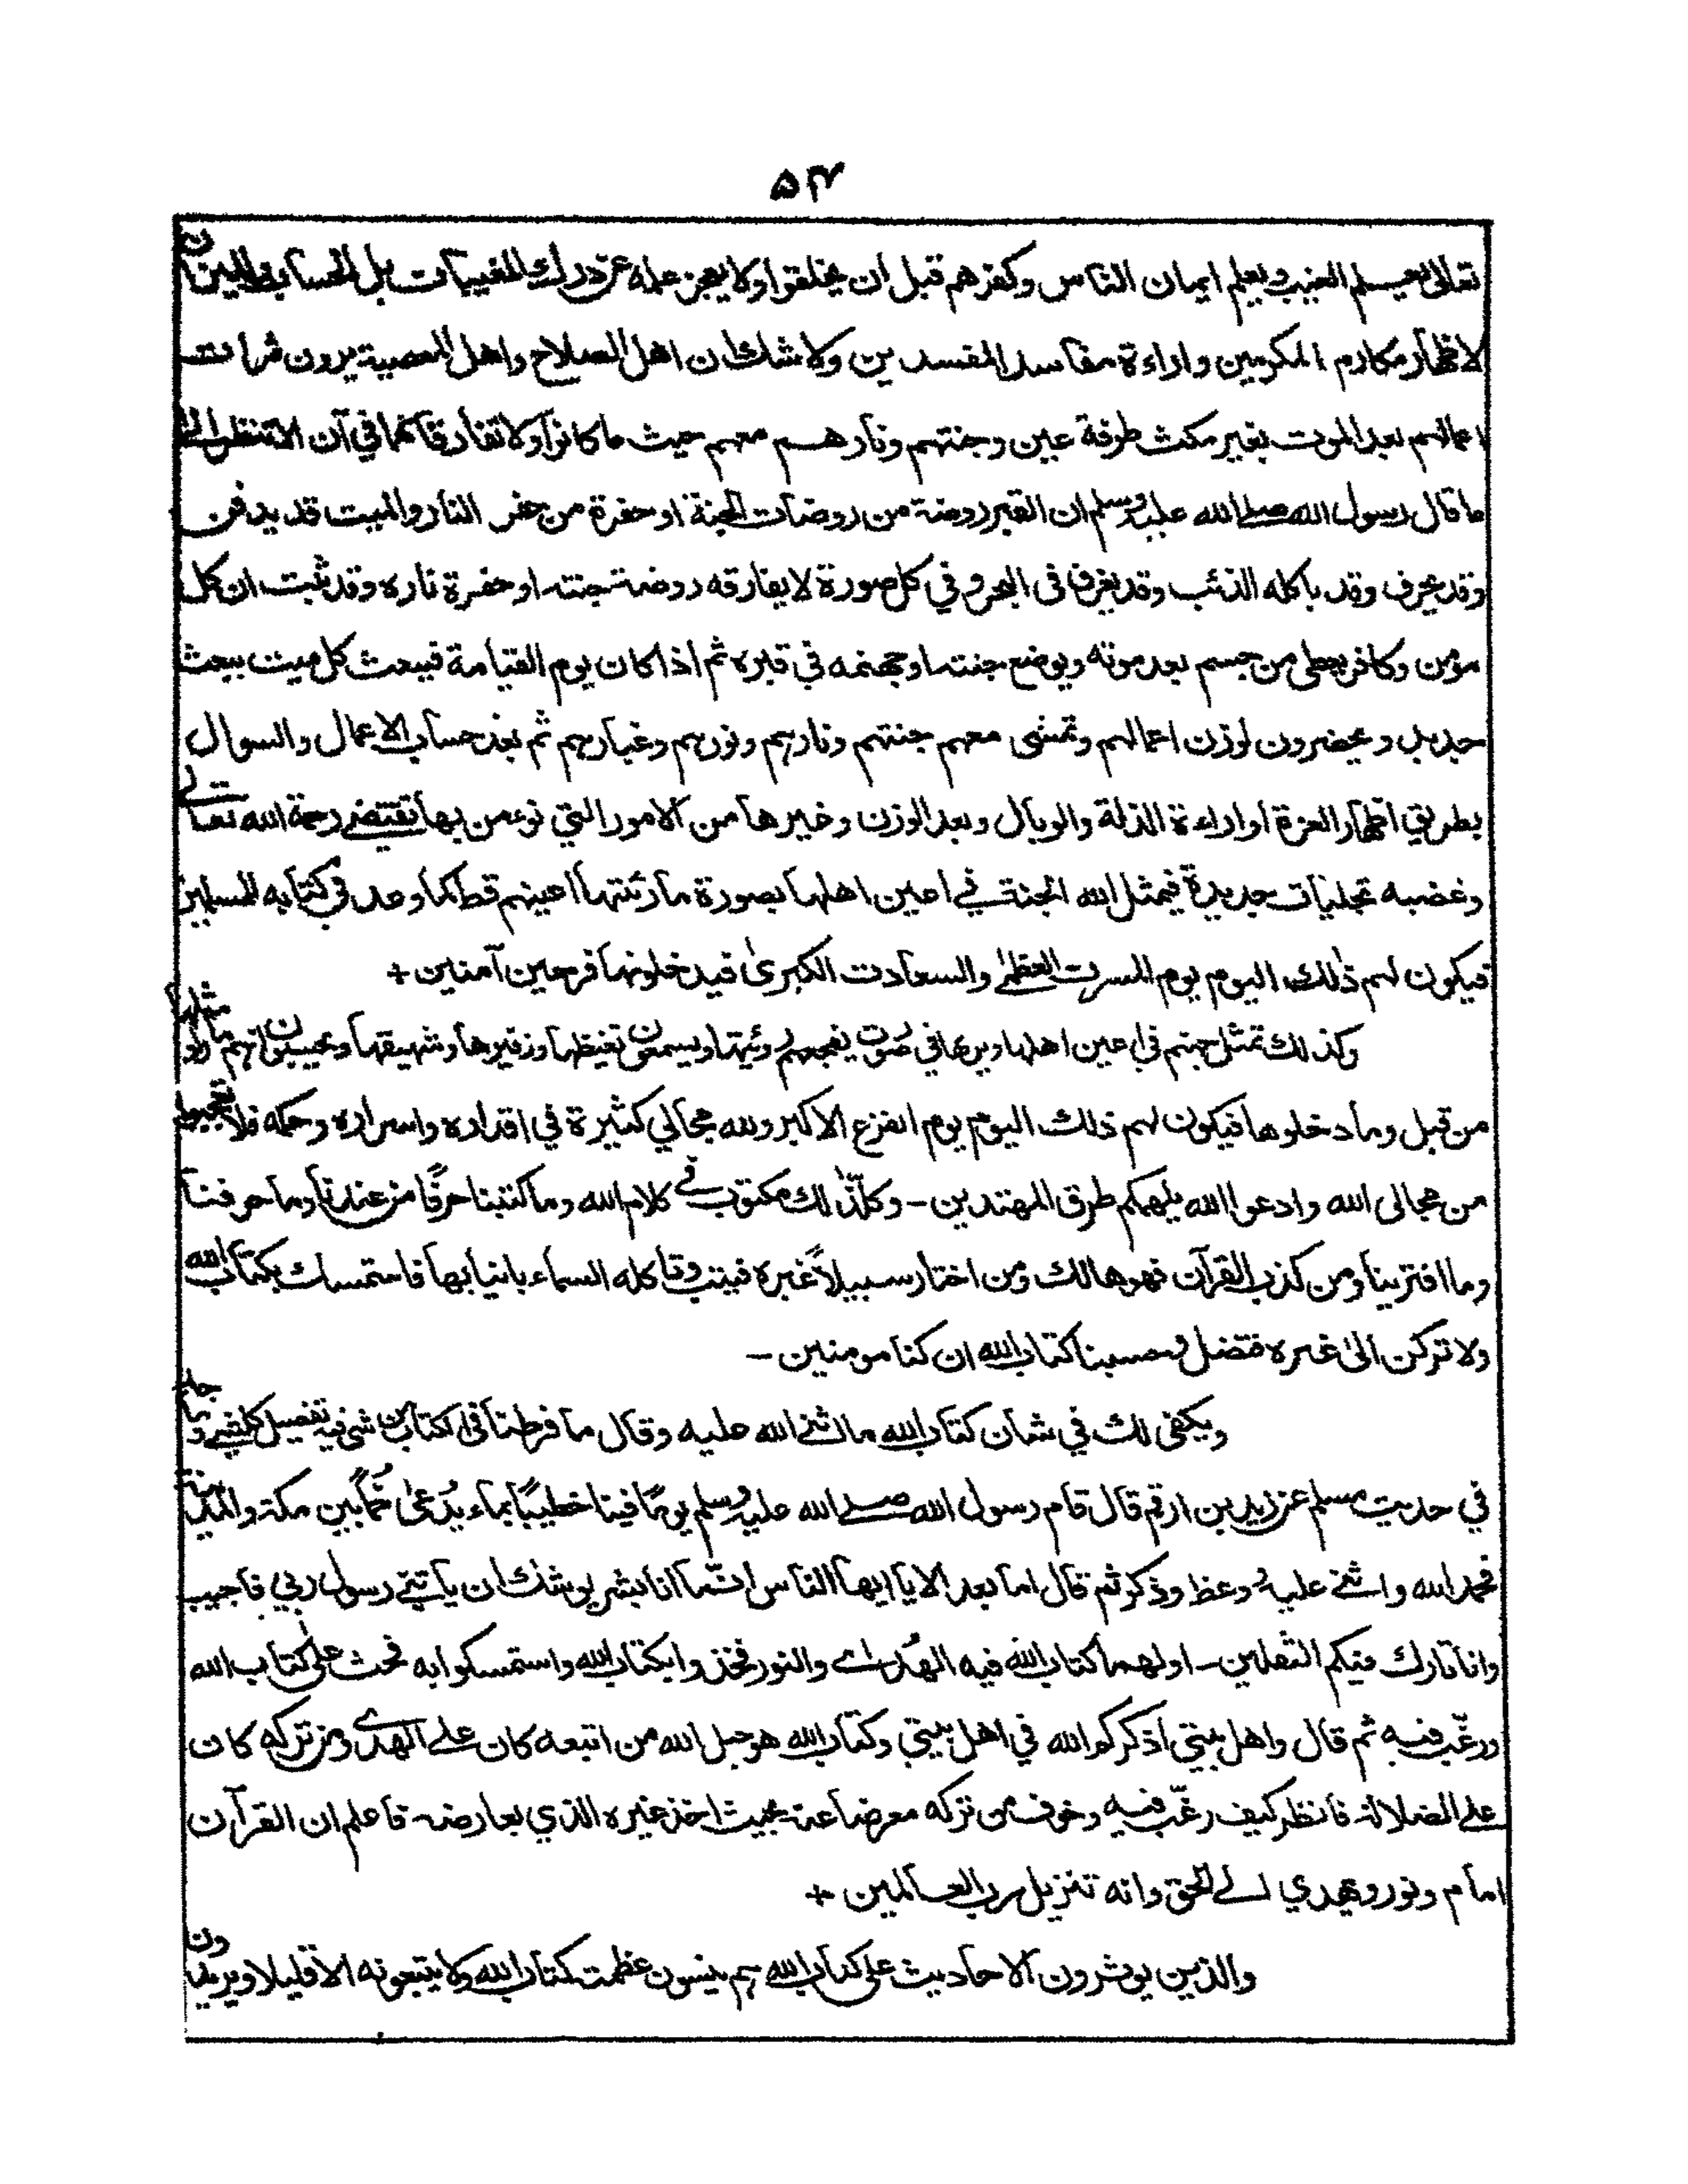 ۵۴
تعالى يعلم الغيب ويعلم ايمان الناس وكفرهم قبل ان يخلقوا ولا يعجز علمه عن درك المغيبات بل الحساب والميزان
لاظهار مكارم المكرمين واراءة مفاسد المفسدين ولا شك ان اهل الصلاح واهل المعصية يرون ثمرات
اعمالهم بعد الموت بغير مكث طرفة عين وجنتهم ونارهم معهم حيث ما كانوا ولا تفارقانهم في آن الا تنظر الى
ما قال رسول الله صلے الله عليه وسلم ان القبر روضة من روضات الجنة او حفرة من حفر النار والميت قد يدفن
وقد يحرق وقد ياكله الذئب وقد يغرق فى البحر وفي كل صورة لا يفارقه روضة جنته او حفرة ناره وقد ثبت ان كل
مؤمن وكافر يعطى من جسم بعد موته ويوضع جنته او جهنمه في قبره ثم اذا كان يوم القيامة فيبعث كل ميت ببعث
جديد ويحضرون لوزن اعمالهم وتمشى معهم جنتهم ونارهم ونورهم وغبارهم ثم بعد حساب الاعمال والسوال
بطريق اظهار العزة او اراءة الذلة والوبال وبعد الوزن وغيرها من الامور التي نؤمن بها تقتضے رحمة الله تعالى
وغضبه تجليات جديدة فيمثل الله الجنة في اعين اهلها بصورة ما رئتها اعينهم قط كما وعد في كتابه للمسلمين
فيكون لهم ذلك اليوم يوم المسرت العظمى والسعادت الكبرى فيدخلونها فرحين آمنين +
وكذلك تمثل جهنم في اعين اهلها ويرىها في صورت يفجعهم رؤيتها ويسمعون تغيظها وزفيرها وشهيقها ويحسبون انهم ما راوا مثلها
من قبل وما دخلوها فيكون لهم ذلك اليوم يوم الفزع الاكبر ولله مجالي كثيرة في اقداره واسراره وحكمه فلا تعجبوا
من مجالى الله وادعوا الله يلهمكم طرق المهتدين - وكل ذلك مكتوب في كلام الله وما كتبنا حرفًا من عندنا وما حرفنا
وما افترينا ومن كذب القرآن فهو هالك ومن اختار سبيلاً غيره فيتب وتاكله السماء بانيابها فاستمسك بكتاب الله
ولا تركن الى غيره فتضل وحسبنا كتاب الله ان كنا مومنين -
ويكفى لك في شان كتاب الله ما اثنى الله عليه وقال ما فرطنا فى الكتاب من شى فيه تفصيل كل شيء وما جاء
في حديث مسلم عن زيد بن ارقم قال قام رسول الله صلے الله عليه وسلم يومًا فينا خطيبًا بماء يُدعى خُمًّا بين مكة والمدينة
فحمد الله واثنى عليه ووعظ وذكر ثم قال اما بعد الا يا ايها الناس انما انا بشر يوشك ان ياتينى رسول ربي فاجيب
وانا تارك فيكم الثقلين - اولهما كتاب الله فيه الهدى والنور فخذوا بكتاب الله واستمسكوا به فحث على كتاب الله
ورغّب فيه ثم قال واهل بيتي اذكركم الله في اهل بيتي وكتاب الله هو حبل الله من اتبعه كان على الهدى ومن تركه كان
على الضلالة فانظر كيف رغّب فيه وخوف من تركه معرضا عنه بحيث اخذ غيره الذي يعارضه فاعلم ان القرآن
امام ونور ويهدي الى الحق وانه تنزيل رب العالمين +
والذين يوثرون الاحاديث على كتاب الله هم ينسون عظمت كتاب الله ولا يتبعونه الا قليلا ويريدون